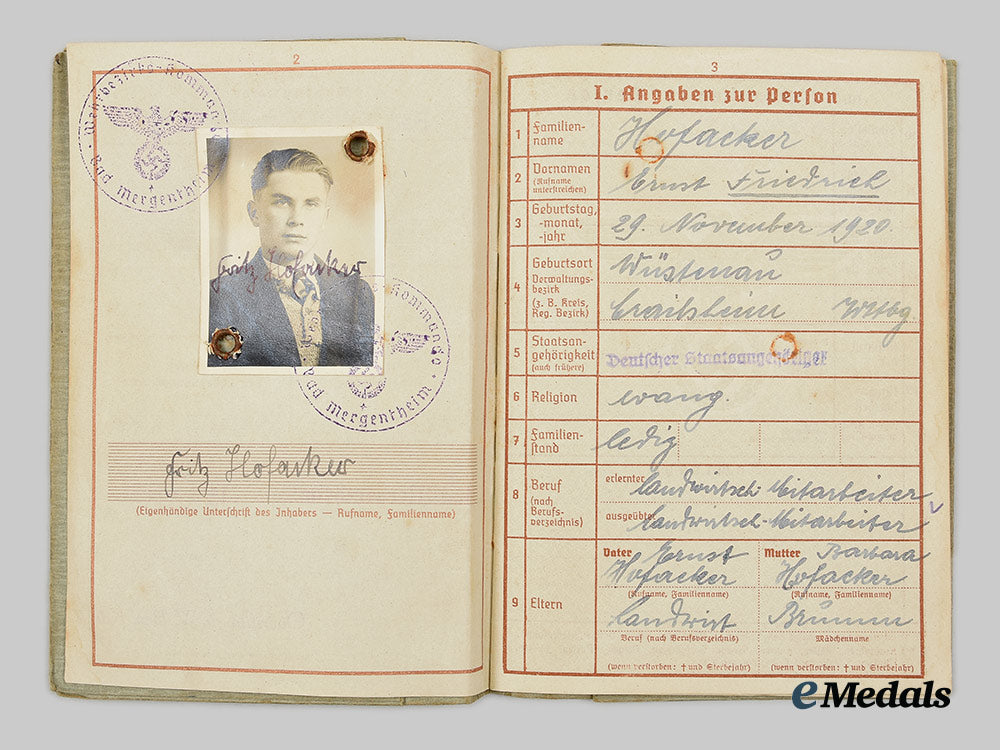 2
Wehrbezirks-Kommando
Bad Mergentheim
Fritz Hofacker
Kommando
Bad Mergentheim
Fritz Hofacker
(Eigenhändige Unterschrift des Inhabers — Rufname, Familienname)
3
I. Angaben zur Person
1 Familien-
name
Hofacker
2 Vornamen
(Rufname
unterstreichen)
Ernst Friedrich
3 Geburtstag,
-monat,
-jahr
29. November 1920.
4 Geburtsort
Verwaltungs-
bezirk
(z. B. Kreis,
Reg. Bezirk)
Wüstenau
Crailsheim Wttbg.
5 Staatsan-
gehörigkeit
(auch frühere)
Deutscher Staatsangehöriger
6 Religion
evang.
7 Familien-
stand
ledig
8 Beruf
(nach
Berufs-
verzeichnis)
erlernter landwirtsch. Mitarbeiter
ausgeübter landwirtsch. Mitarbeiter
9 Eltern
Vater Ernst
Hofacker
(Rufname, Familienname)
Landwirt
Beruf (nach Berufsverzeichnis)
(wenn verstorben: † und Sterbejahr)
Mutter Barbara
Hofacker
(Rufname, Familienname)
Brumm
Mädchenname
(wenn verstorben: † und Sterbejahr)
eMedals